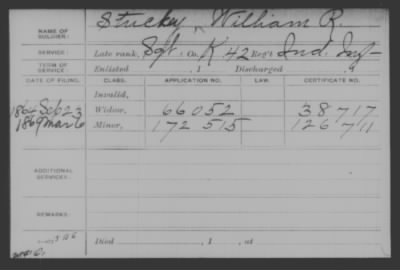 NAME OF SOLDIER: Stuckey, William R.
SERVICE: Late rank, Sgt, Co. K 42 Reg't Ind. Inf
TERM OF SERVICE: Enlisted , 1 Discharged , 1
DATE OF FILING. CLASS. APPLICATION NO. LAW. CERTIFICATE NO.
Invalid,
1864 Feb 23 Widow, 66052 38717
1869 Mar 6 Minor, 172 515 126 711
ADDITIONAL SERVICES:
REMARKS:
Died , 1 , at